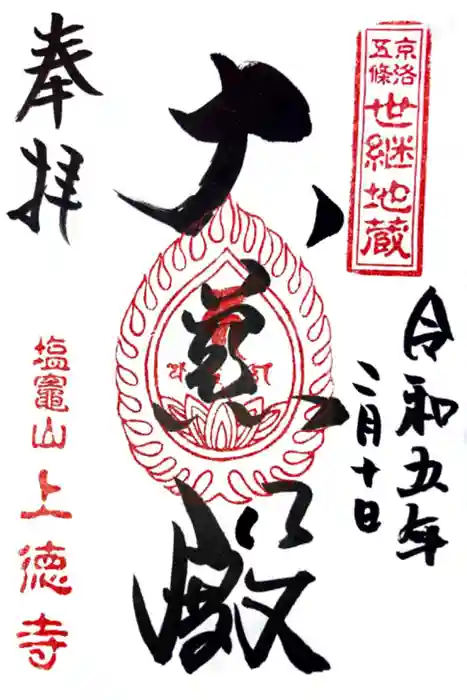 京洛
五條
世継地蔵
令和五年
二月十日
大慈殿
奉拝
塩竈山上徳寺